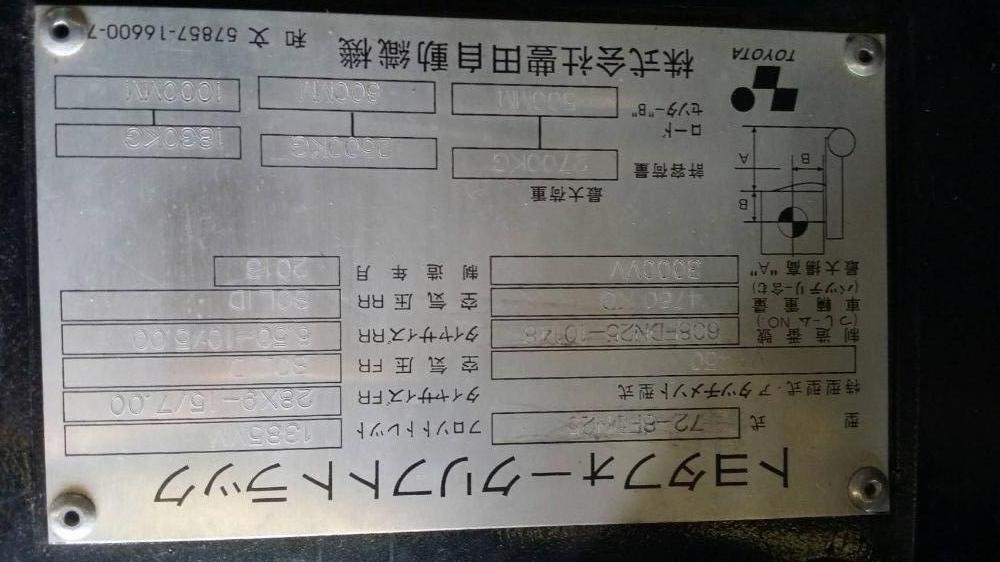 トヨタフォークリフトトラック
型 式 フロントレツト
特型型式・アタツチメント型式 タイヤサイズFR 28X9-15/7.00
空気圧 FR
制造番號 (フレームNO.) タイヤサイズRR 6.50-10/5.00
車輛重量 (バツテリー含む) 空気圧 RR SOLID
最大揚高"A" 3000MM 制造年月 2013
B A B
最大荷重
許容荷重 2700KG 2600KG
ロードセンター"B" 500MM 600MM 1000MM
TOYOTA
株式会社豊田自動織機
和文 57857-16600-7